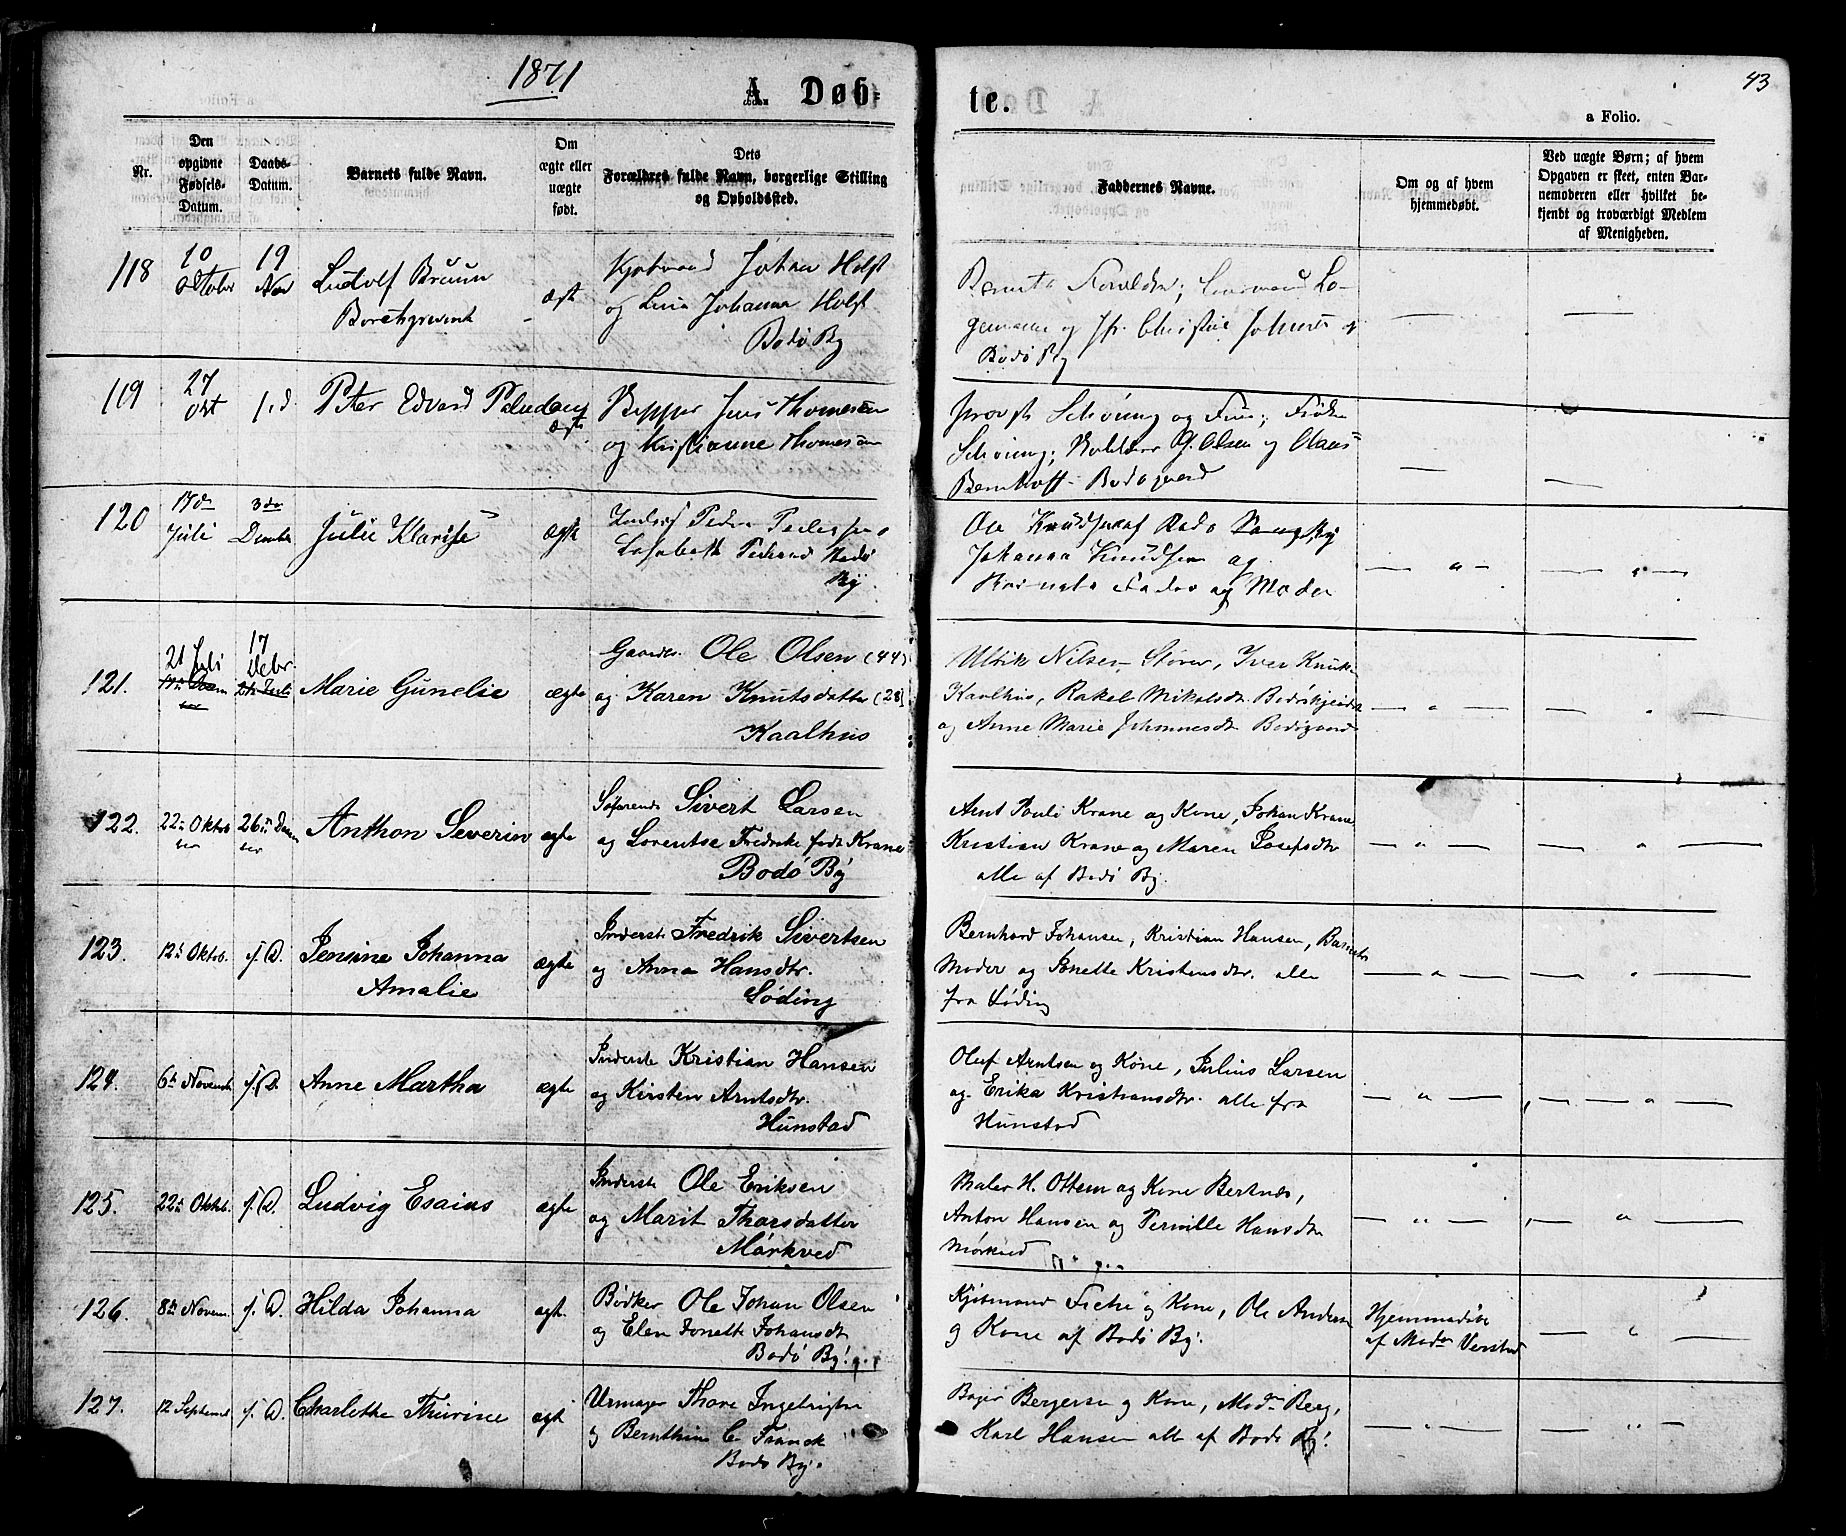 1871
A. Døb-
te.
43
a Folio.
Nr.
Den opgivne Fødsels-Datum.
Daabs-Datum.
Barnets fulde Navn.
Om ægte eller uægte født.
Dets Forældres fulde Navn, borgerlige Stilling og Opholdssted.
Faddernes Navne.
Om og af hvem hjemmedøbt.
Ved uægte Børn; af hvem Opgaven er skeet, enten Barnemoderen eller hvilket bekjendt og troværdigt Medlem af Menigheden.
118
10 Octobr
19 Nov
Ludolf Bruun
Borchgrevink
ægte
Johan Holst
og Johanna Holst
Bodø By
og Christine
Bodø By
119
27 Oct
f. d.
Peter Edvard Paludan
ægte
Jens Thomesen
og Kristianne Thomesen
Provst Schöning og Frue; Frøken
Schöning; G. Olsen og Claus
Bernhoft Bodøgaard
120
17de Juli
3die
Julie Klarise
ægte
Peder Pedersen
Bodø
By.
Ole Knudsen af Bodø
Johanna Knudsen og
Fader og Moder
121.
21 Juli
17 Debr.
Marie Gunelie
ægte
Gaardbr. Ole Olsen (44)
og Karen Knutsdatter (28)
Kaalhus
Ulrik Nilsen Støver, Iver Knuts.
Kaalhus, Rakel Mikalsdt. Bodøskjeidet
og Anne Marie Johannesdt. Bodøgaard
122.
22de Oktober
26de
Anthon Severin
ægte
Søfarende Sivert Larsen
og Lorentse Fredrike født Krane
Bodø By
Arnt Pauli Krane og Kone, Johan Krane
Kristian Krane og Maren Josefsdtr
alle af Bodø By.
123.
12te Oktob.
f. D.
Jensine Johanna
Amalie
ægte
Inderst Fredrik Sivertsen
og Anna Hansdtr.
Løding
Bernhard Johansen, Kristian Hansen, Barnets
Moder og Jonette Kristensdtr. alle
fra Løding
124.
6te Novemb.
f. D.
Anne Martha
ægte
Inderst Kristian Hansen
og Kirsten Arntsdtr.
Hunstad
Oluf Arntsen og Kone, Julius Larsen
og Erika Kristiansdtr. alle fra
Hunstad
125.
22de Oktob.
f. D.
Ludvig Esaias
ægte
Inderst Ole Eriksen
og Marit Tharsdatter
Mørkved
Maler H. Ottem og Kone Bertnes,
Anton Hansen og Pernille Hansdtr
Mørkved
126.
8de Novem.
f. D.
Hilda Johanna
ægt.
Bødker Ole Johan Olsen
og Elen Jonette Johansdt.
Bodø By.
Kjøbmand og Kone, Ole Andersen
og Kone af Bodø By.
Hjemmedøbt
af Madm
127.
12 Septemb
f. D.
Charlotte Thurine
ægt
Urmager Thore Ingebrigtsen
og Bernthine C. Franck
Bodø By.
Bager Bergersen og Kone, Madm Berg,
Karl Hansen alle af Bodø By.